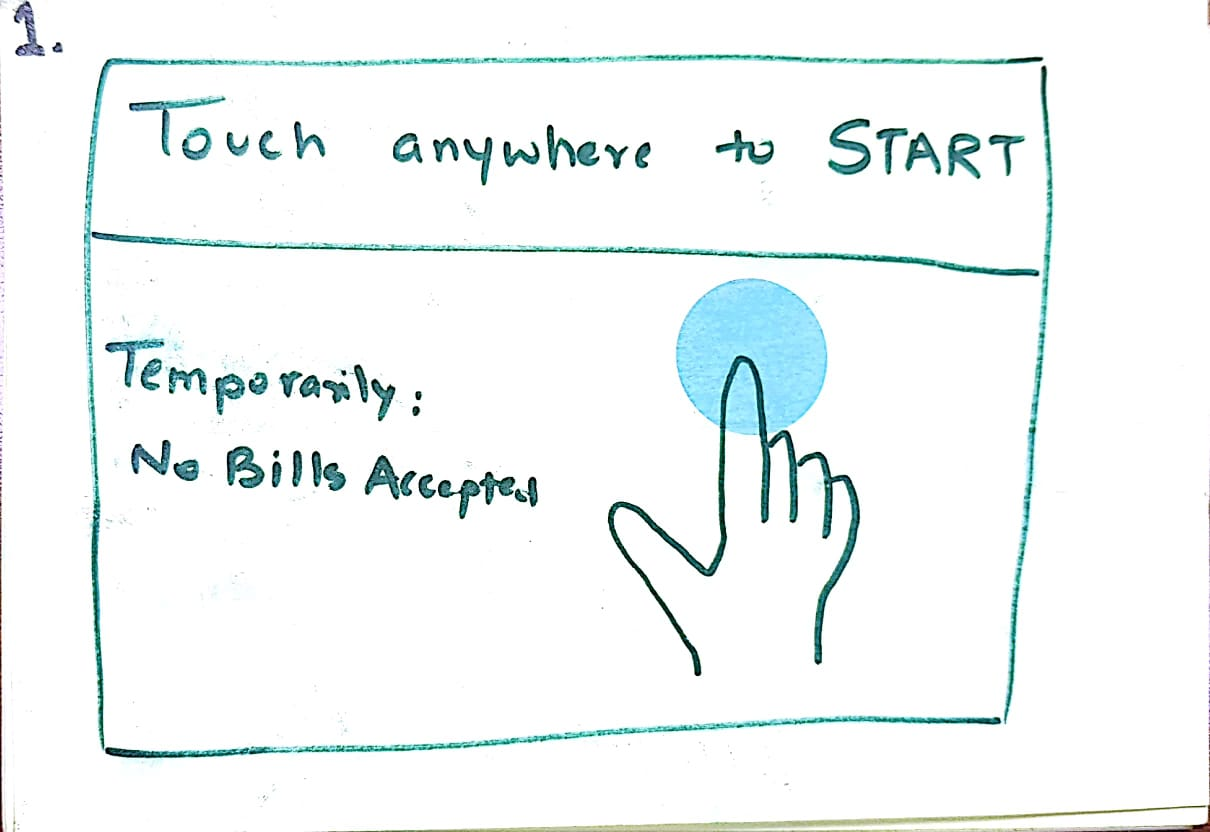 1.
Touch anywhere to START
Temporarily:
No Bills Accepted